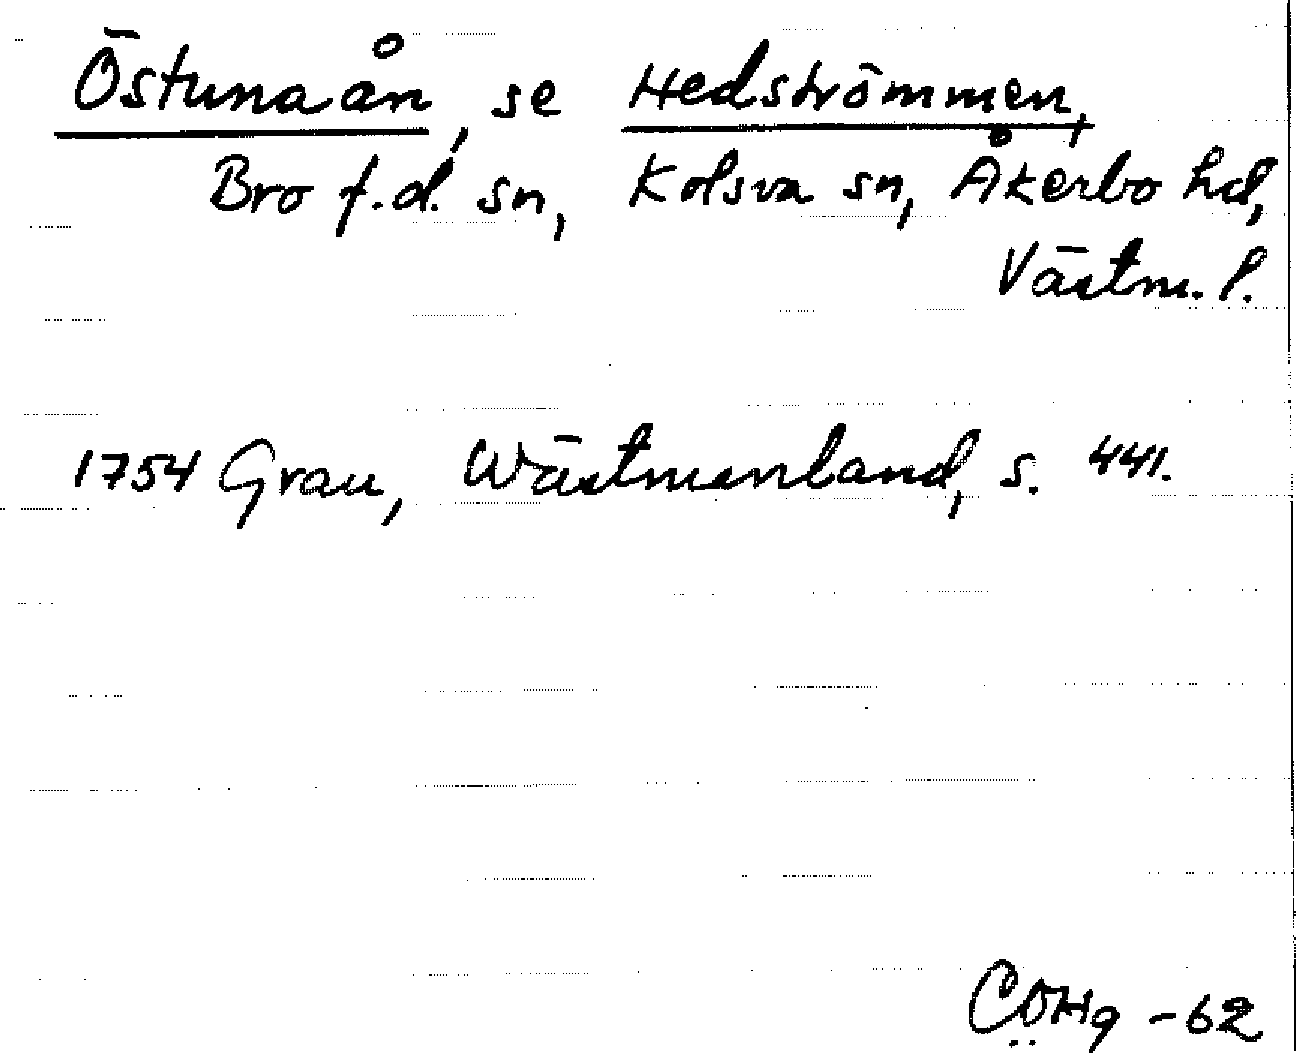 Östunaån, se Hedströmmen,
Bro f.d. sn, Kolsva sn, Åkerbo hd,
Västm. l.
1754 Grau, Wästmanland, s. 441.
-62